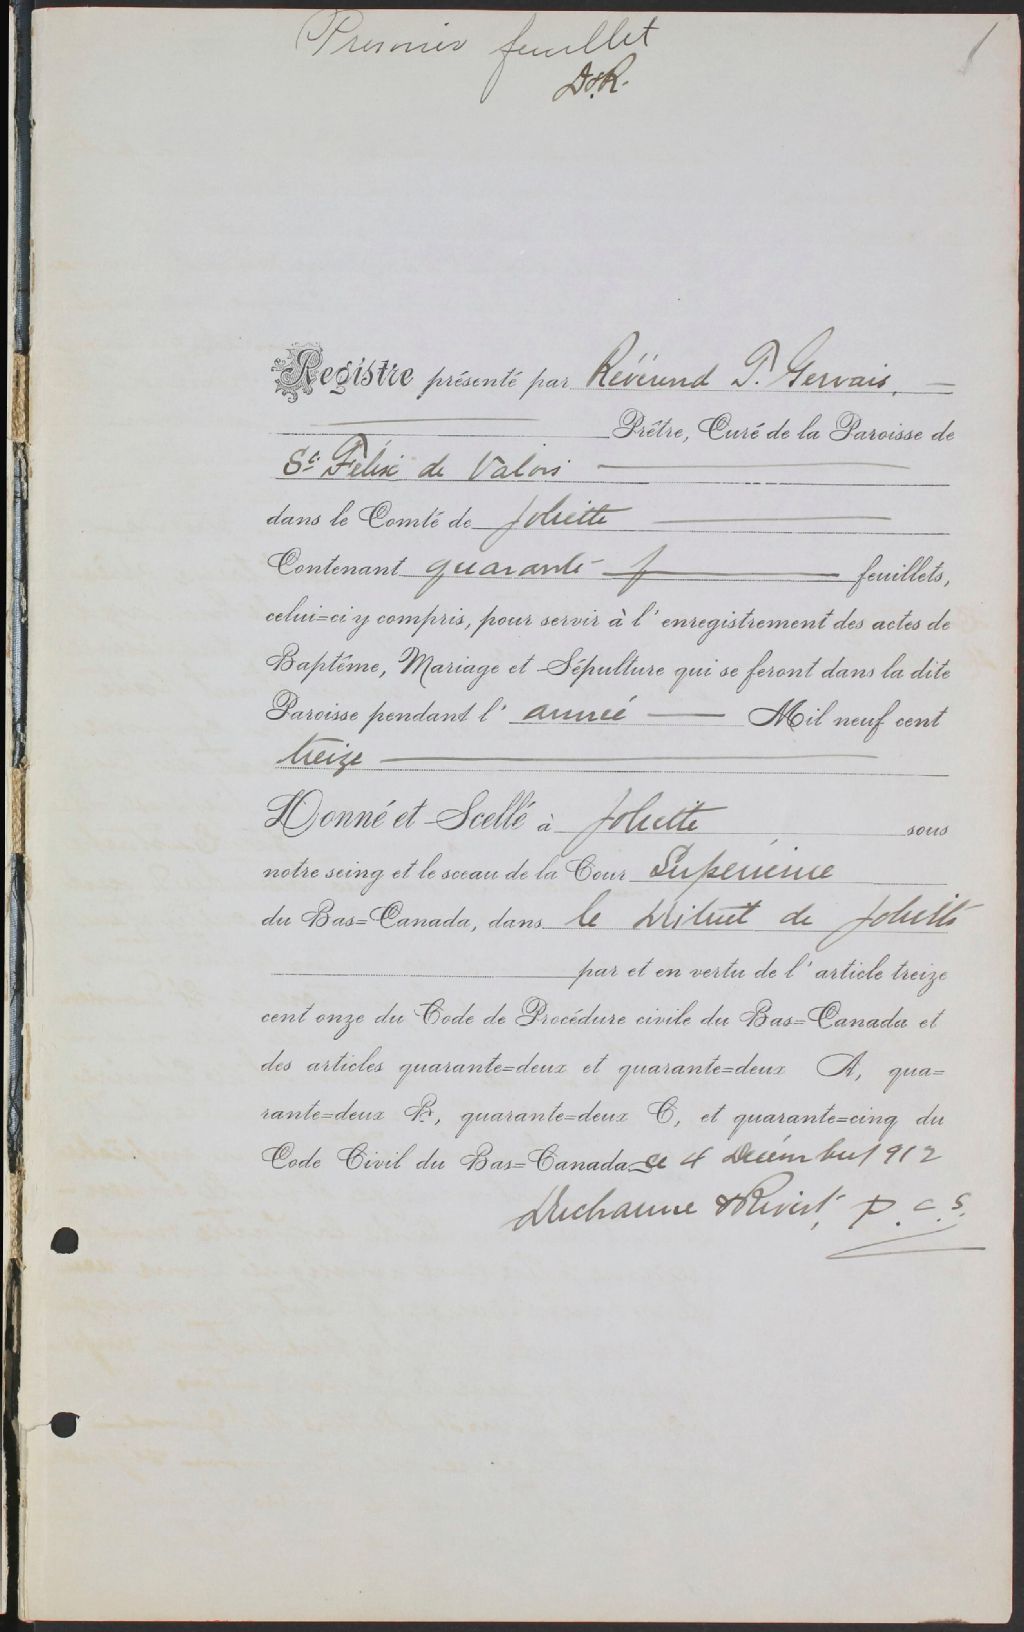 Premier feuillet
1
D&R.
Registre présenté par Révérend P. Gervais,
Prêtre, Curé de la Paroisse de
St Félix de Valois
dans le Comté de Joliette
Contenant quarante feuillets,
celui=ci y compris, pour servir à l'enregistrement des actes de
Baptême, Mariage et Sépulture qui se feront dans la dite
Paroisse pendant l'année Mil neuf cent
treize
Donné et Scellé à Joliette sous
notre seing et le sceau de la Cour Supérieure
du Bas=Canada, dans le district de Joliette
par et en vertu de l'article treize
cent onze du Code de Procédure civile du Bas=Canada et
des articles quarante=deux et quarante=deux A, qua=
rante=deux B, quarante=deux C, et quarante=cinq du
Code Civil du Bas=Canada ce 4 Décembre 1912
& Rivest, P.C.S.